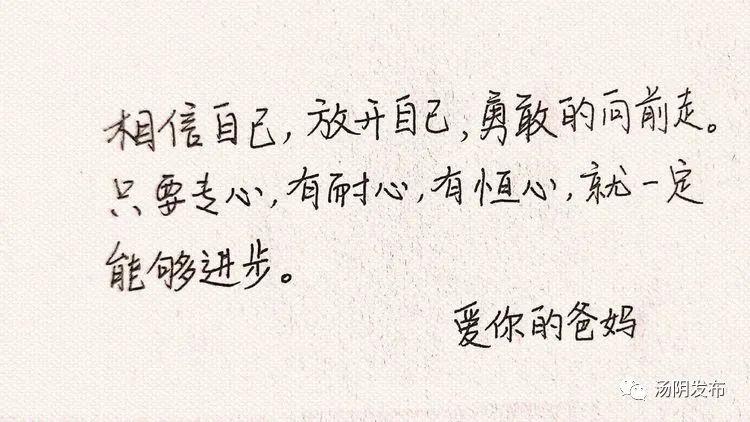 相信自己,放开自己,勇敢的向前走。
只要专心,有耐心,有恒心,就一定
能够进步。
爱你的爸妈
汤阴发布